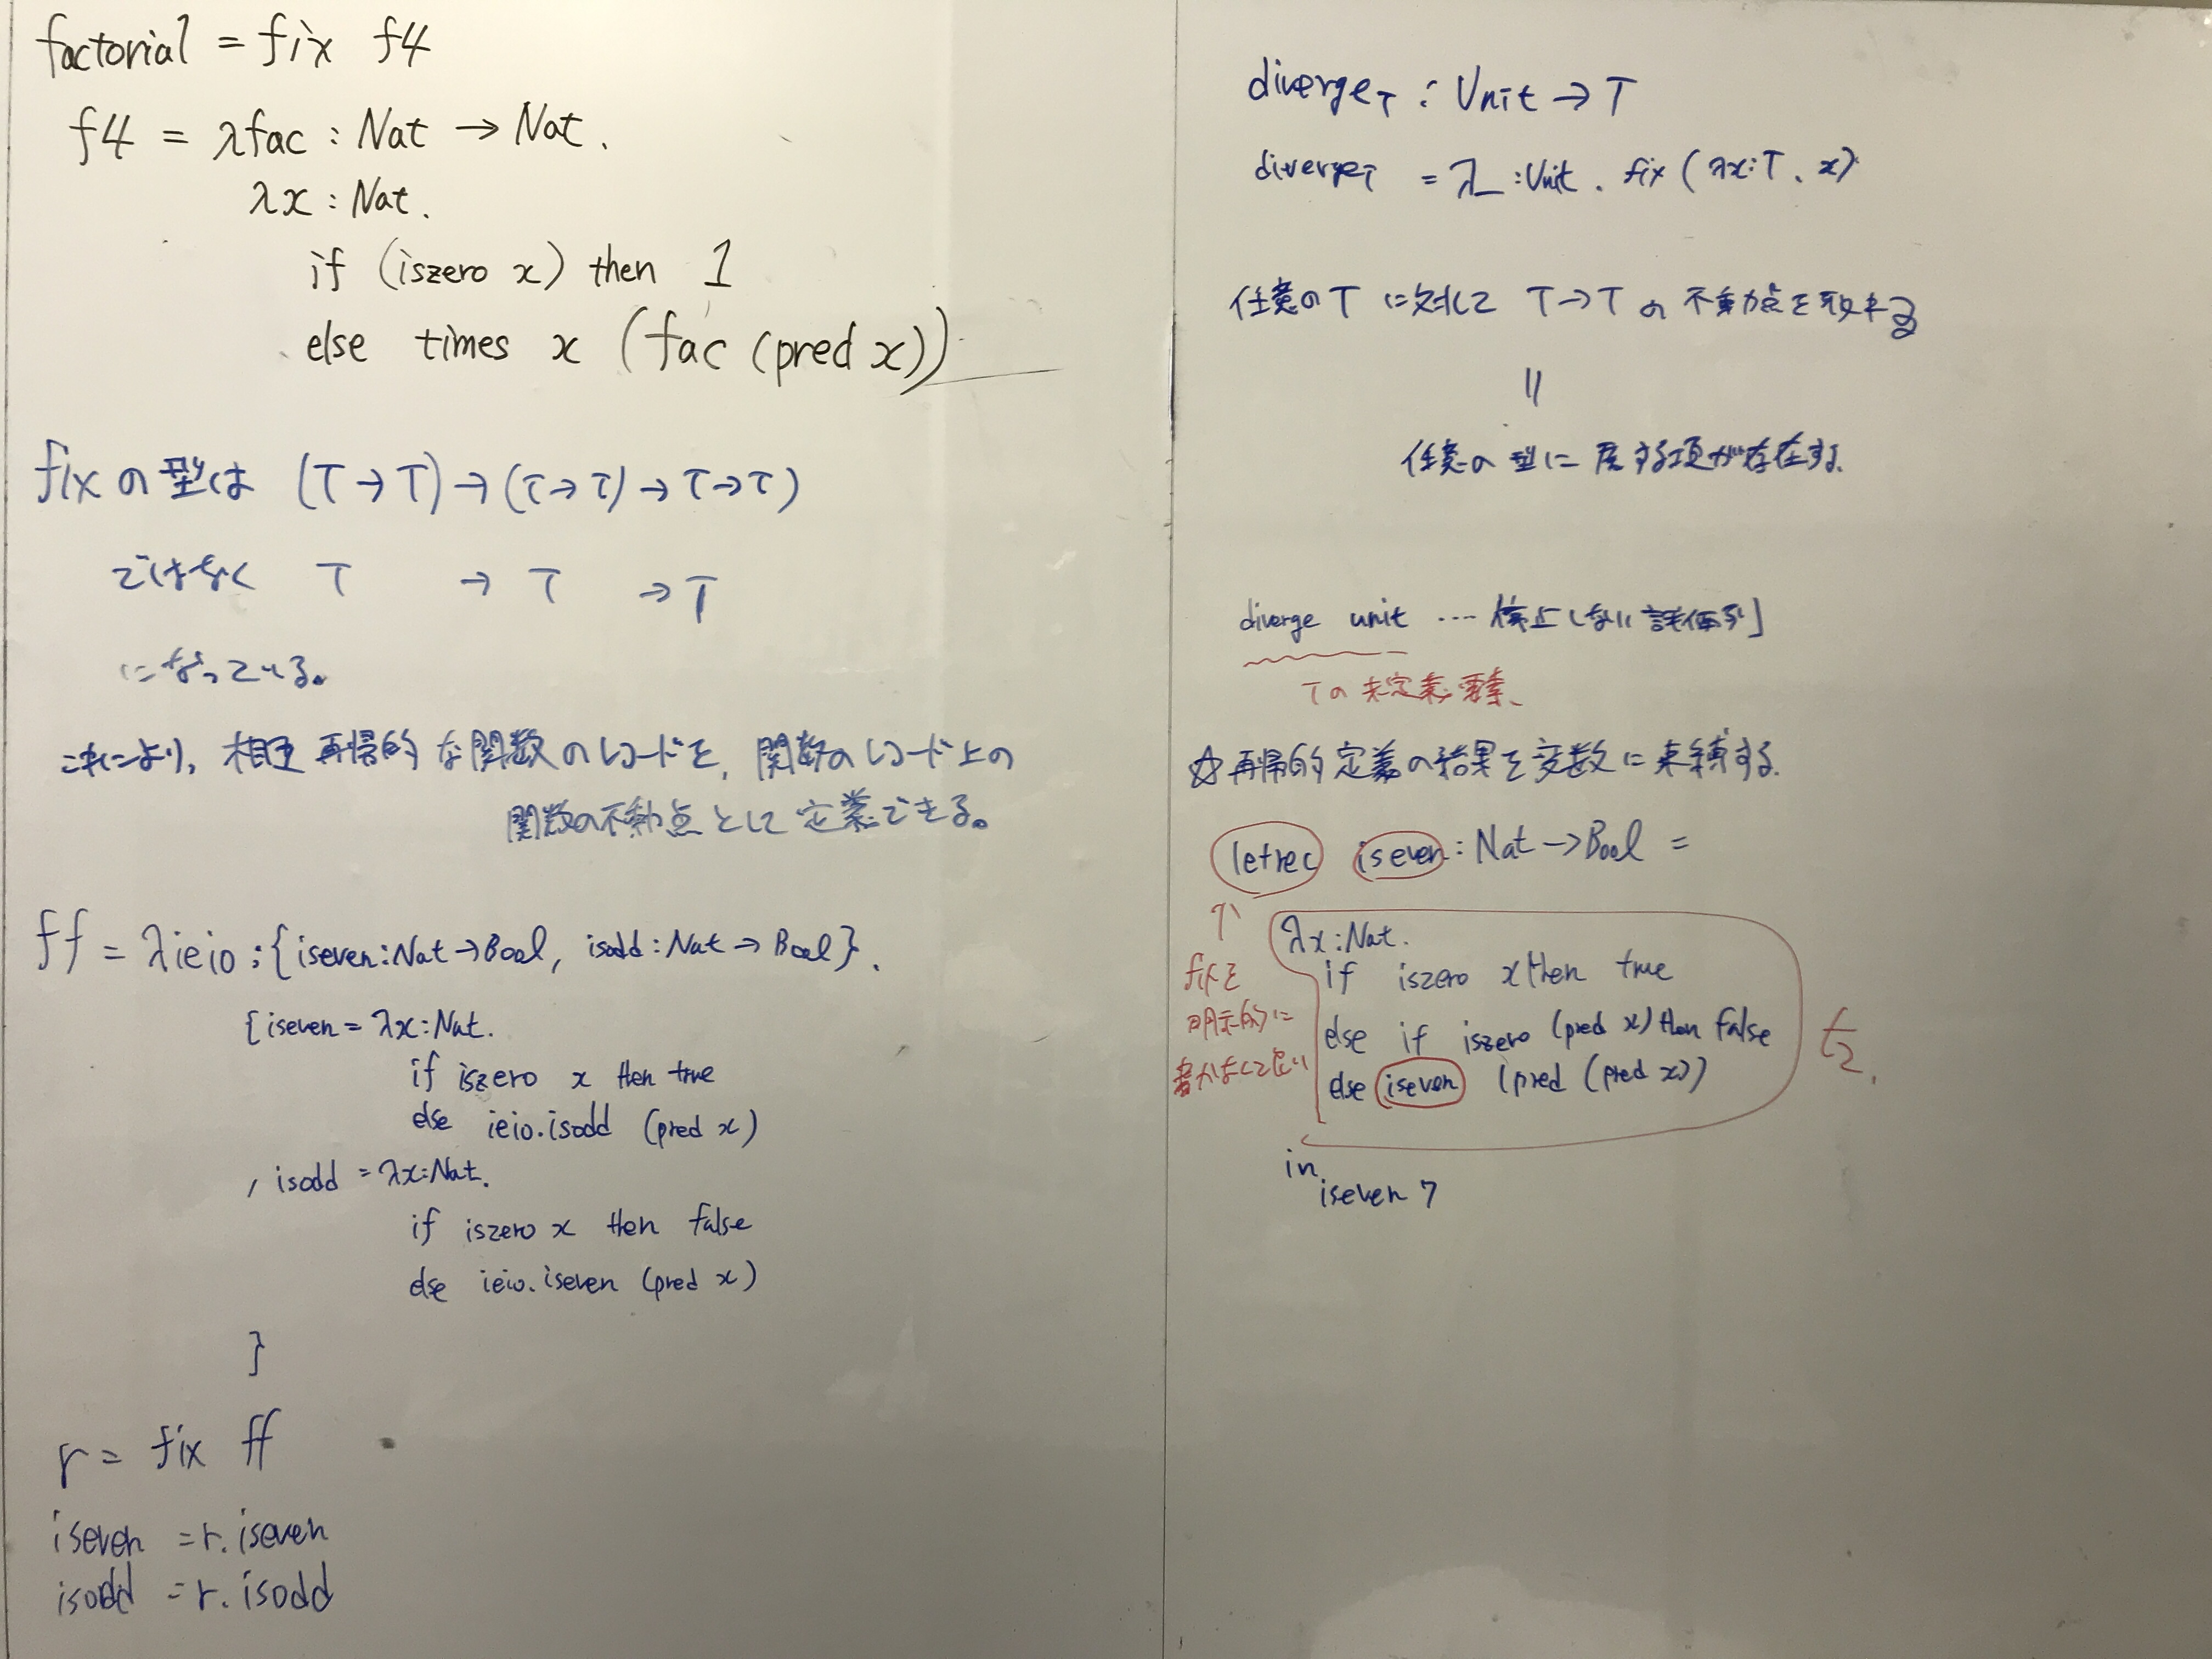 factorial = fix f4
f4 = λfac : Nat → Nat.
λx : Nat.
if (iszero x) then 1
else times x (fac (pred x))
fixの型は (T→T)→(τ→τ)→τ→τ)
ではなく T → T → T
になっている。
これにより, 相互再帰的な関数のレコードを, 関数のレコード上の
関数の不動点として定義できる。
ff = λieio : {iseven:Nat→Bool, isodd:Nat→Bool}.
{iseven = λx:Nat.
if iszero x then true
else ieio.isodd (pred x)
, isodd = λx:Nat.
if iszero x then false
else ieio.iseven (pred x)
}
r = fix ff
iseven = r.iseven
isodd = r.isodd
diverge_T : Unit → T
diverge_T = λ_:Unit. fix (λx:T. x)
任意のTに対して T→T の不動点を取れる
||
任意の型に属する項が存在する.
diverge unit ‥‥ 停止しない評価列
Tの未定義要素、
☆再帰的定義の結果を変数に束縛する.
letrec iseven : Nat→Bool =
↑
fixを
明示的に
書かなくて良い
λx:Nat.
if iszero x then true
else if iszero (pred x) then false
else iseven (pred (pred x))
t₂.
in
iseven 7